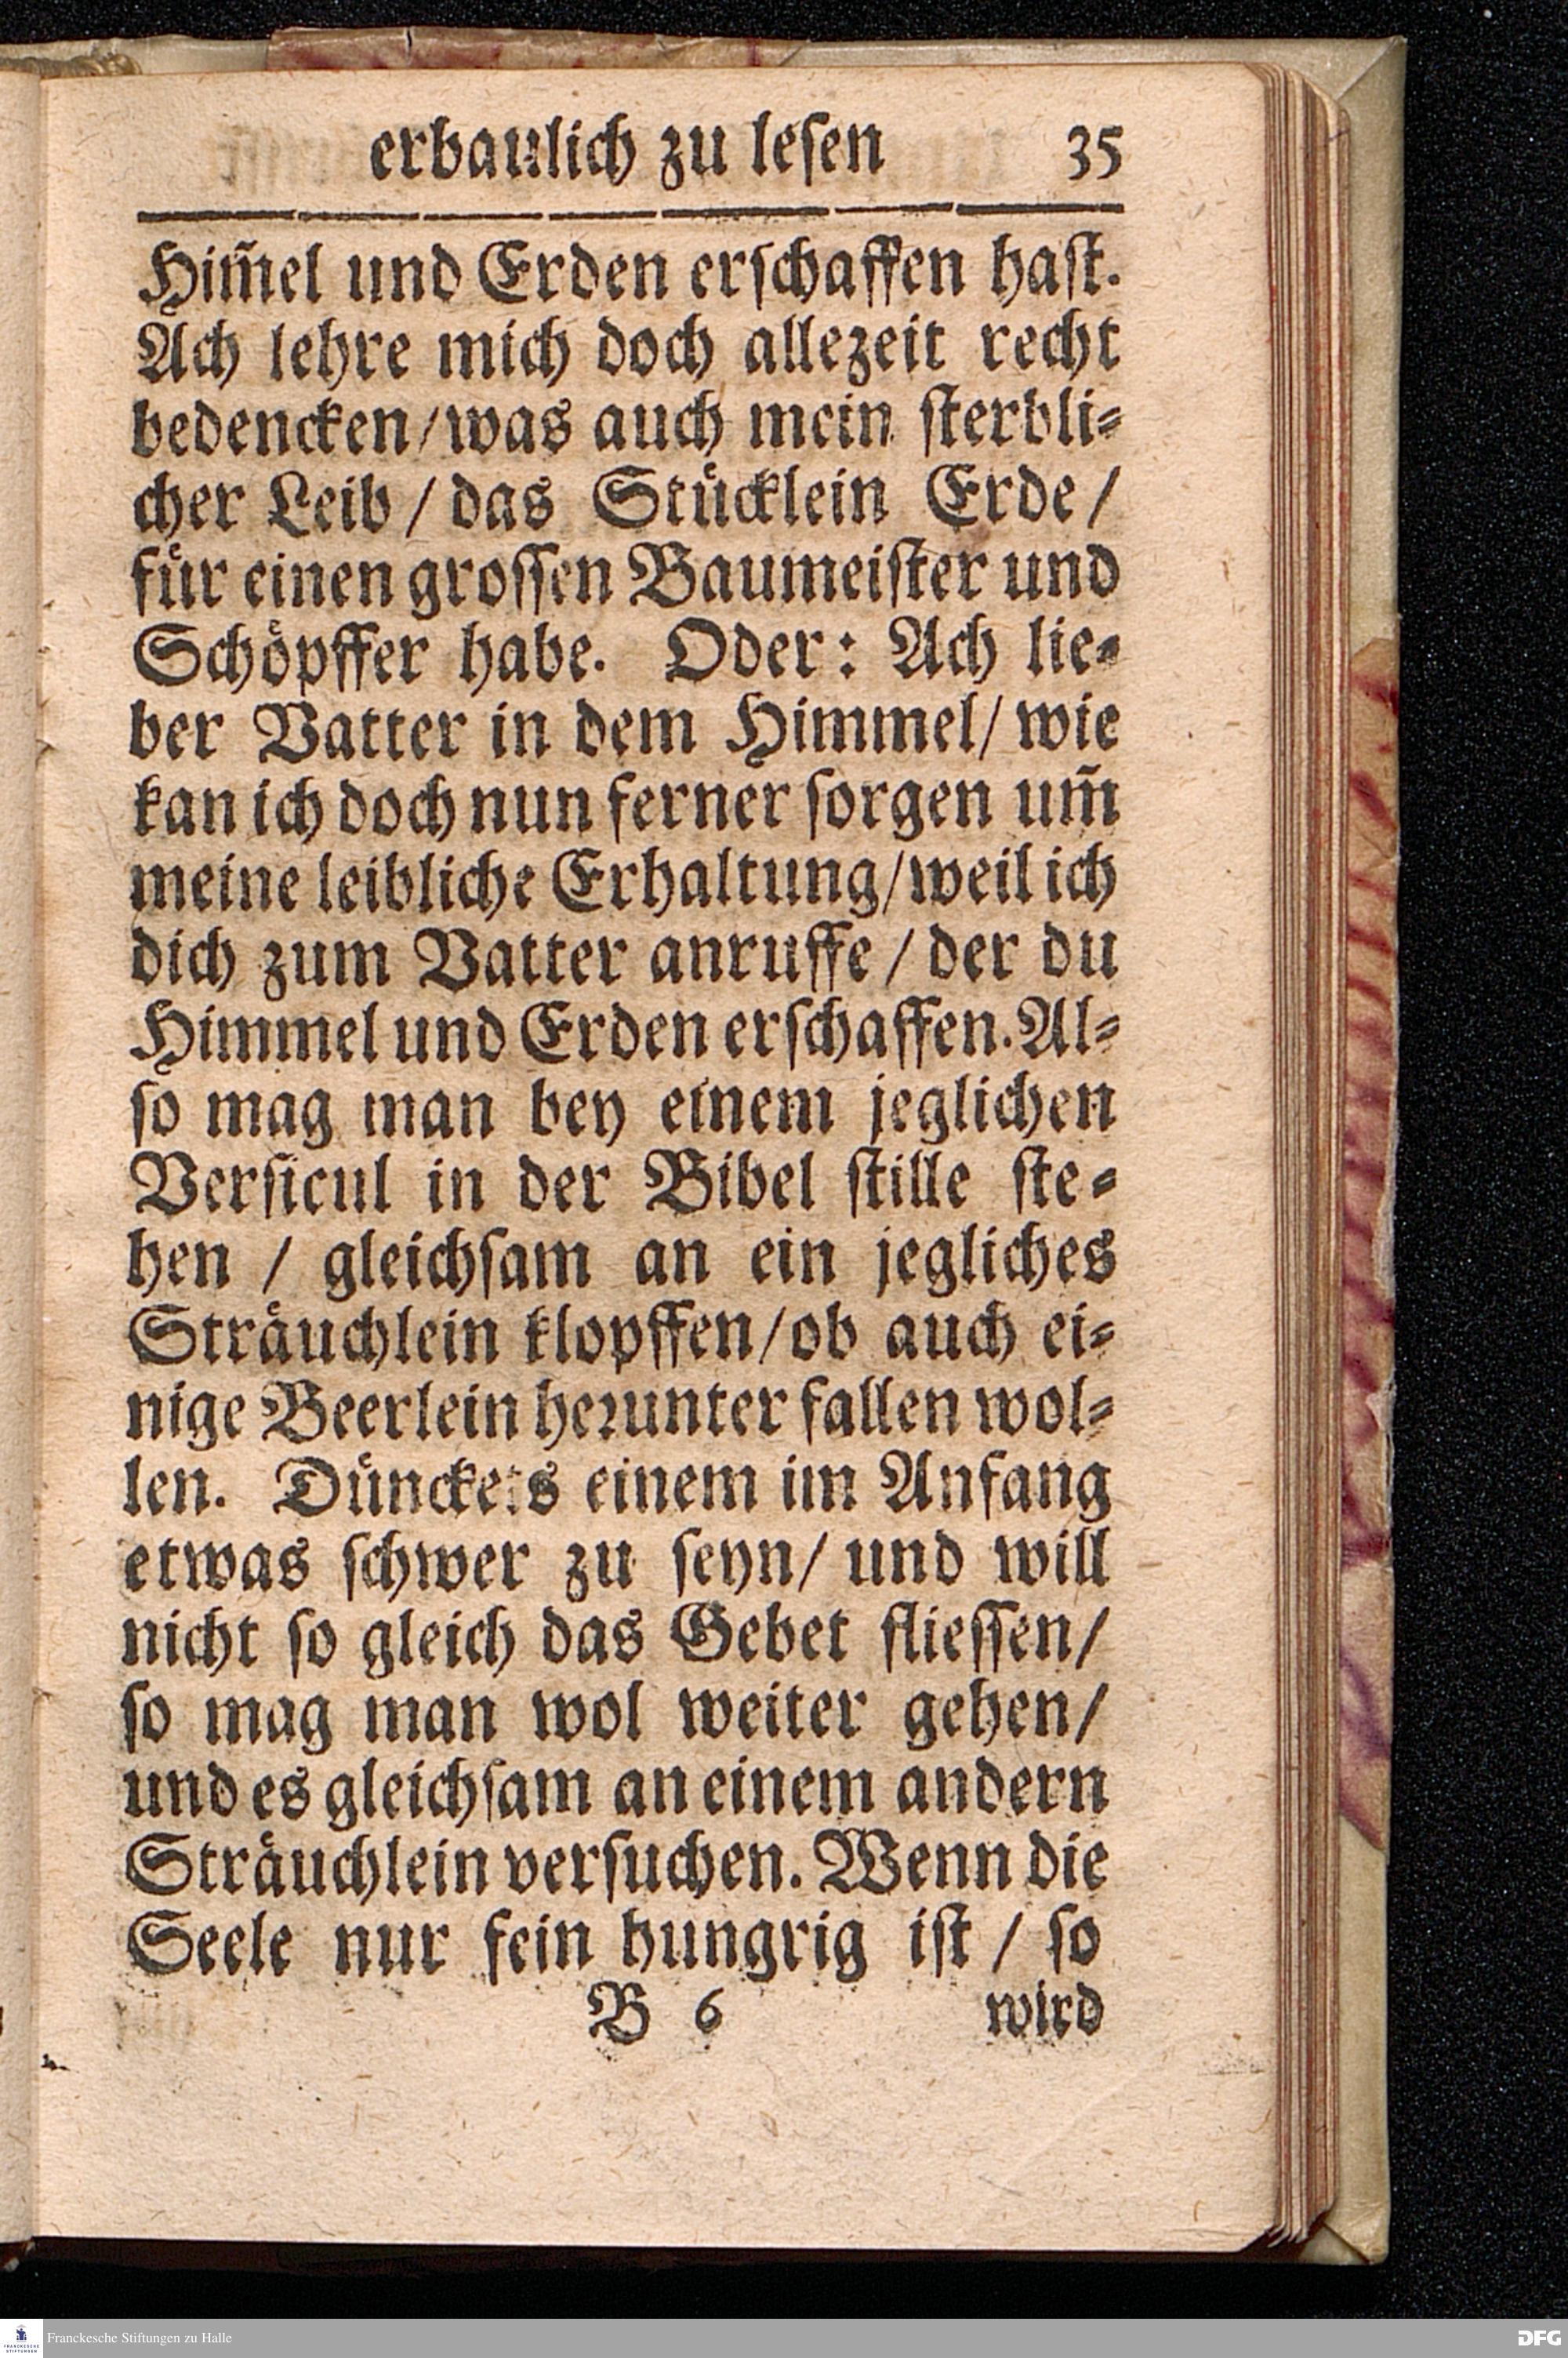 erbaulich zu leſen 35
Him̃el und Erden erſchaffen haſt.
Ach lehre mich doch allezeit recht
bedencken/was auch mein ſterbli⸗
cher Leib / das Stuͤcklein Erde /
fuͤr einen groſſen Baumeiſter und
Schoͤpffer habe. Oder: Ach lie⸗
ber Vatter in dem Himmel/ wie
kan ich doch nun ferner ſorgen um̃
meine leibliche Erhaltung/weil ich
dich zum Vatter anruffe / der du
Himmel und Erden erſchaffen. Al⸗
ſo mag man bey einem jeglichen
Verſicul in der Bibel ſtille ſte⸗
hen / gleichſam an ein jegliches
Straͤuchlein klopffen/ob auch ei⸗
nige Beerlein heꝛunter fallen wol⸗
len. Duͤnckets einem im Anfang
etwas ſchwer zu ſeyn/ und will
nicht ſo gleich das Gebet flieſſen/
ſo mag man wol weiter gehen/
und es gleichſam an einem andern
Straͤuchlein verſuchen. Wenn die
Seele nur fein hungrig iſt / ſo
B 6 wird
FRANCKESCHE STIFTUNGEN
Franckesche Stiftungen zu Halle
DFG